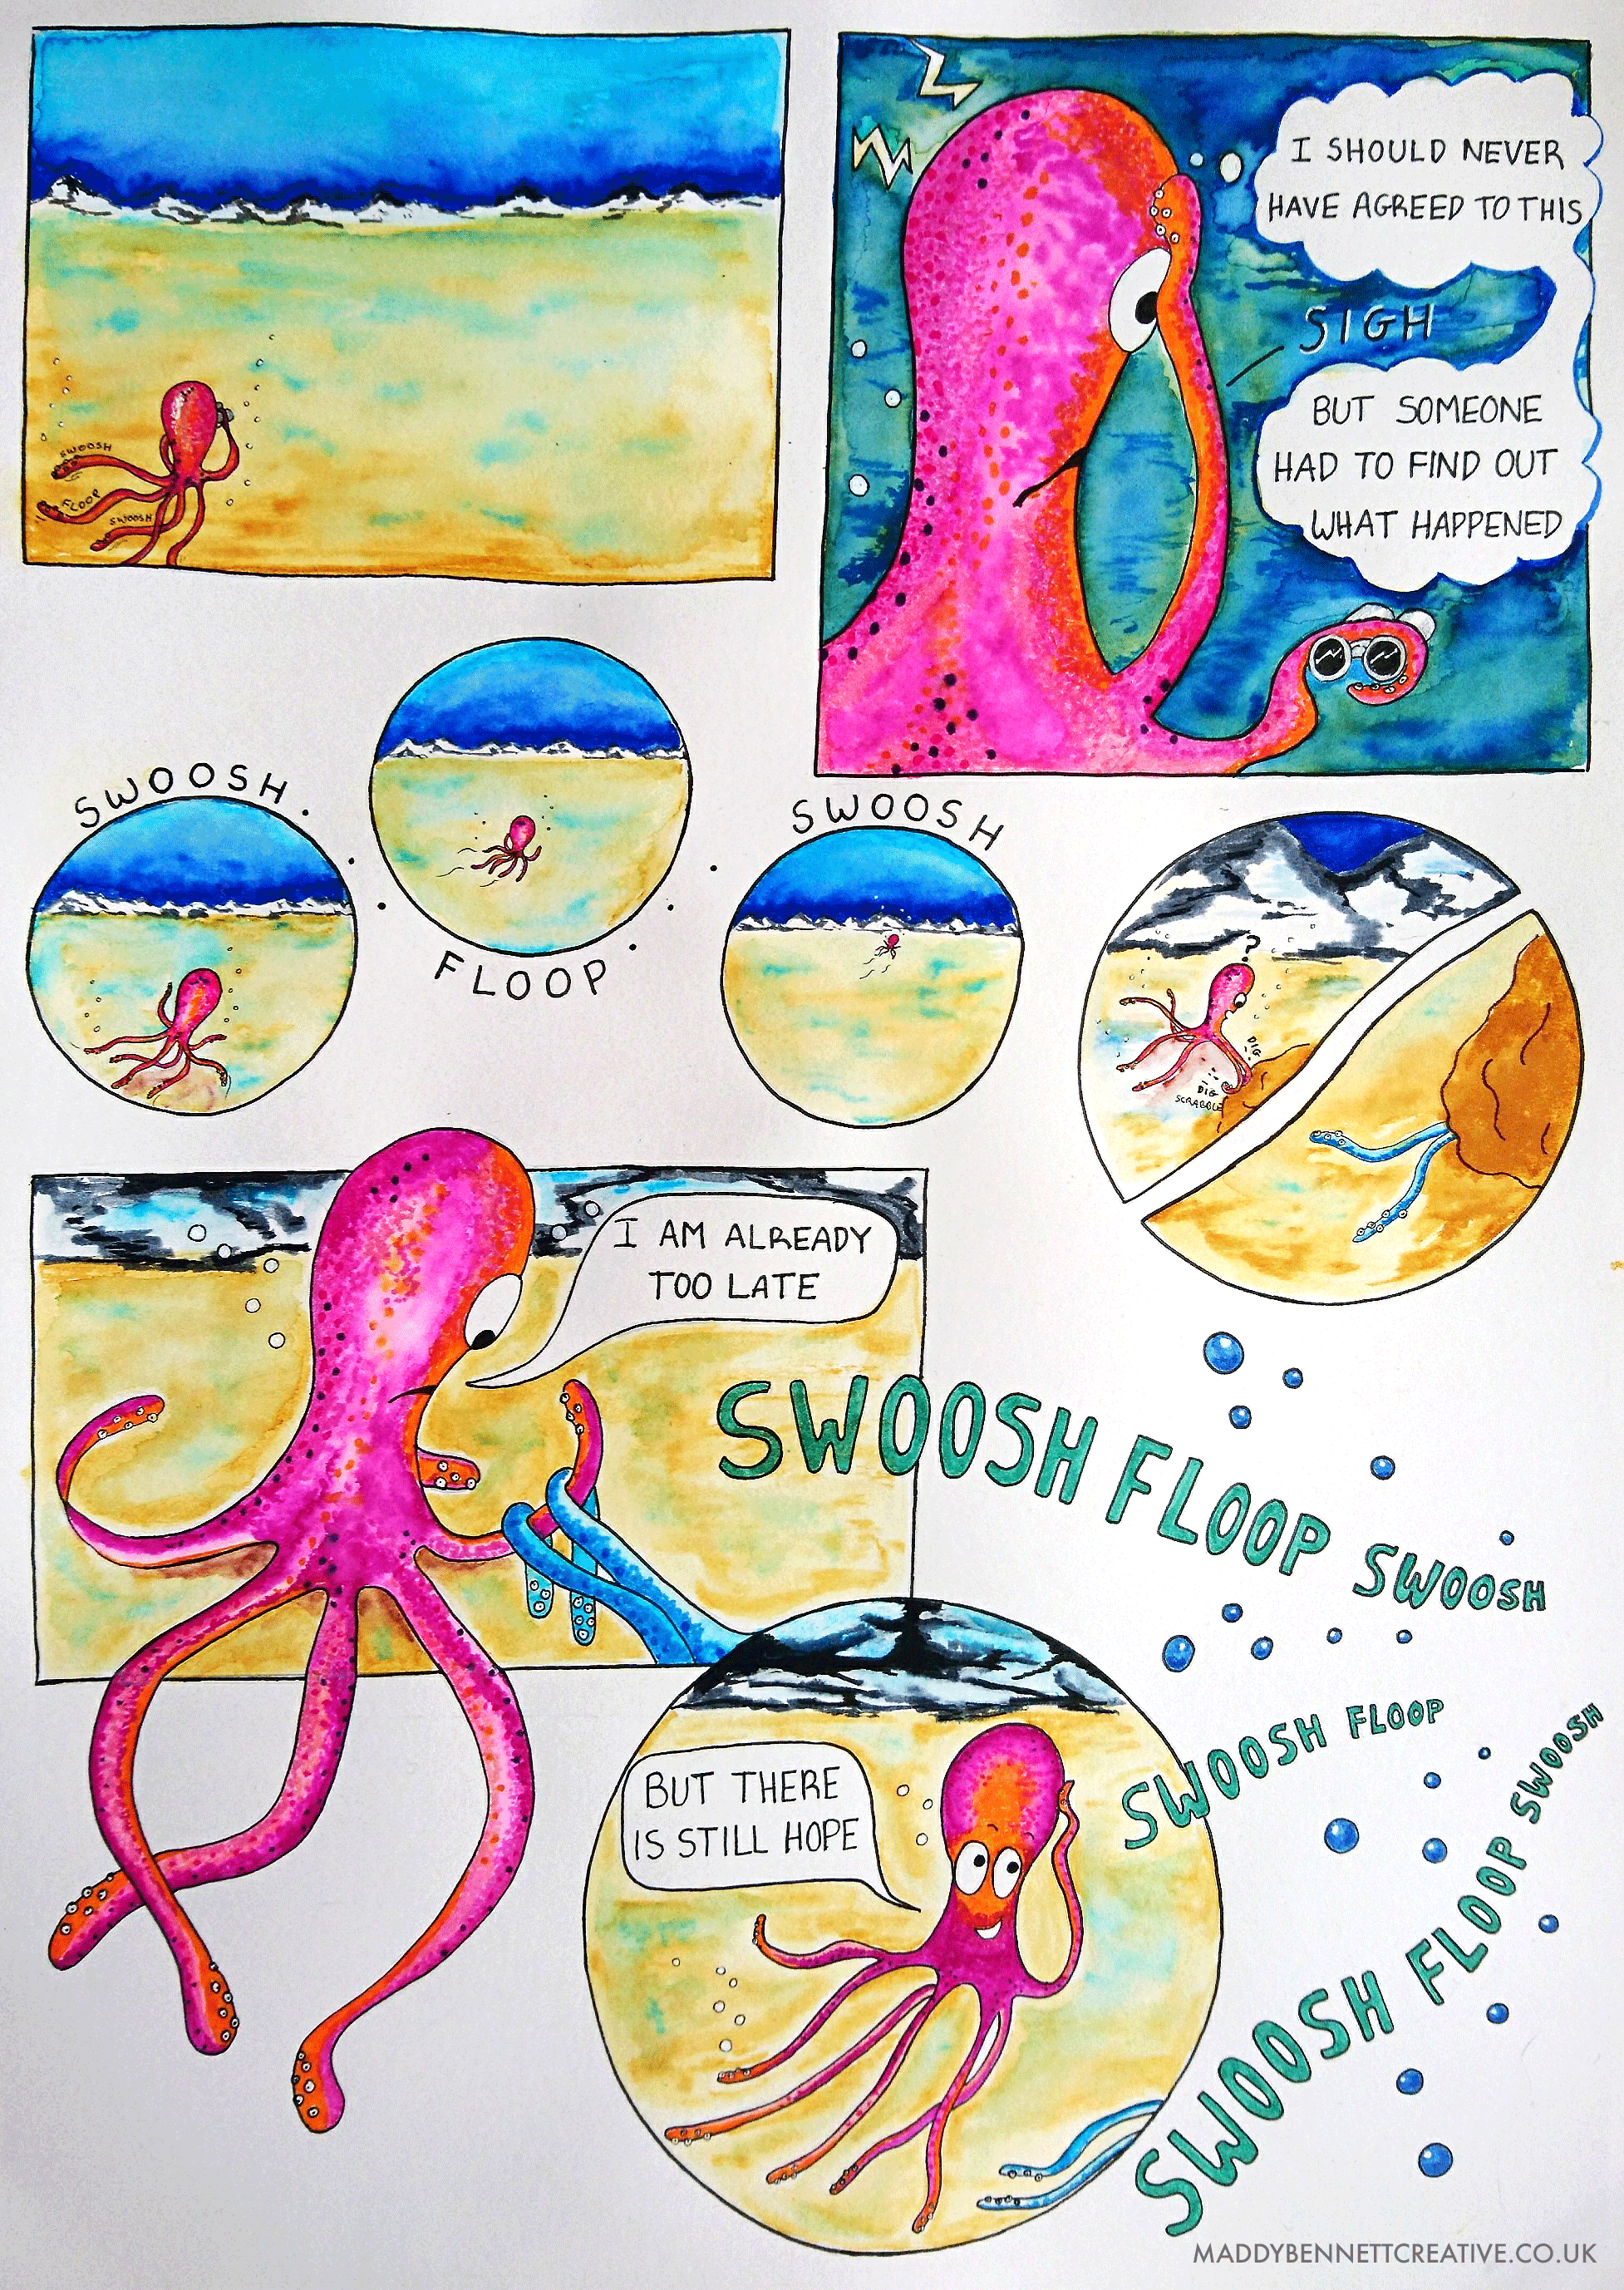 SWOOSH
FLOOP
SWOOSH
I SHOULD NEVER
HAVE AGREED TO THIS
SIGH
BUT SOMEONE
HAD TO FIND OUT
WHAT HAPPENED
SWOOSH
FLOOP
SWOOSH
?
DIG
DIG
SCRABBLE
I AM ALREADY
TOO LATE
SWOOSH FLOOP SWOOSH
BUT THERE
IS STILL HOPE
SWOOSH FLOOP
SWOOSH FLOOP SWOOSH
MADDYBENNETTCREATIVE.CO.UK